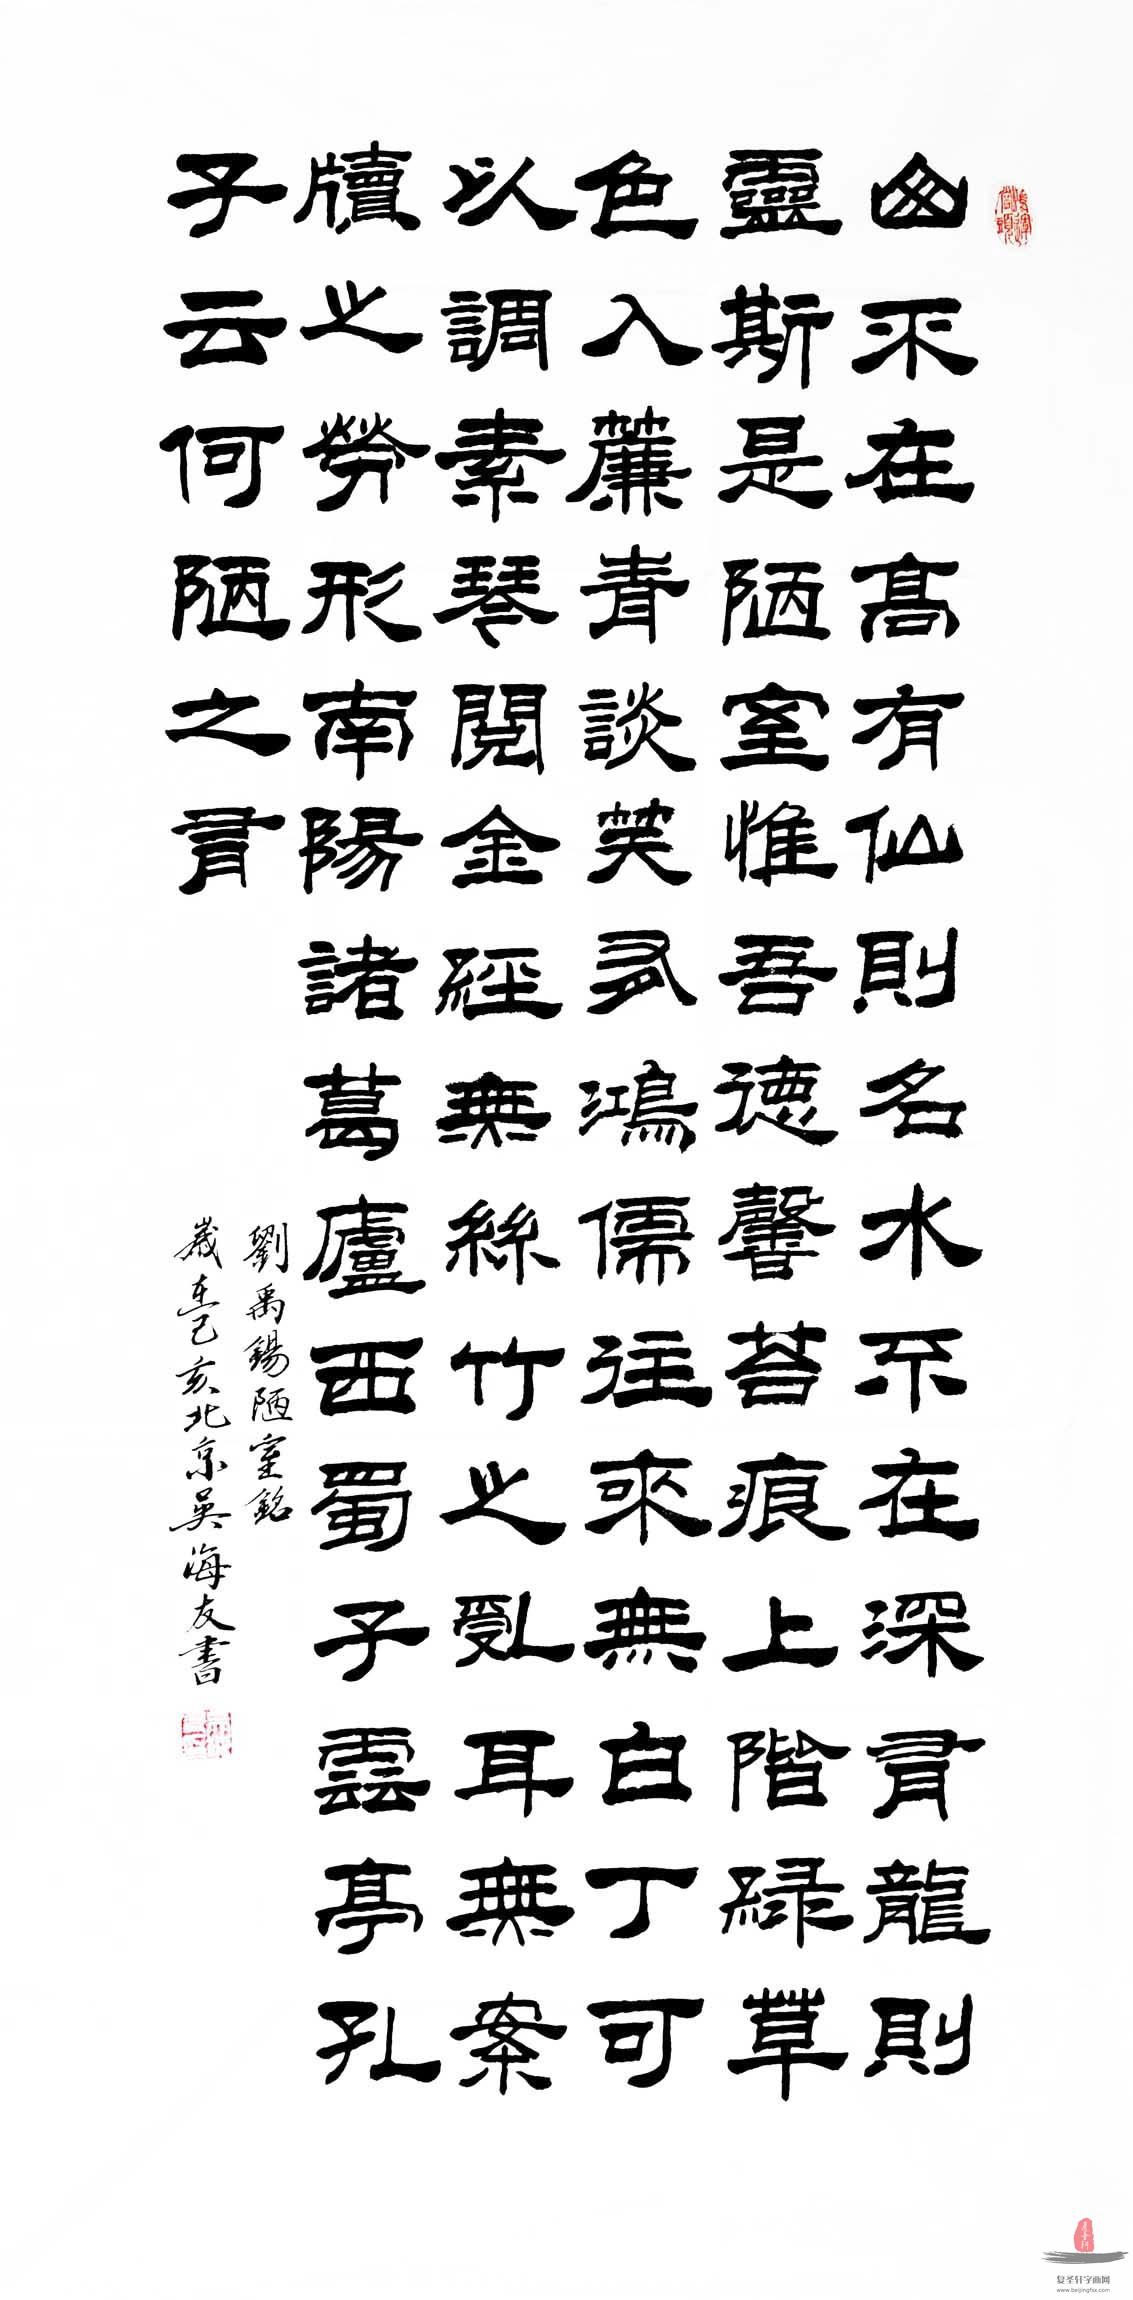 鴻運當頭
山不在高有仙則名水不在深有龍則
靈斯是陋室惟吾德馨苔痕上階緑草
色入簾青談笑有鴻儒往來無白丁可
以調素琴閱金經無絲竹之亂耳無案
牘之勞形南陽諸葛廬西蜀子雲亭孔
子云何陋之有
劉禹錫陋室銘
歲在己亥北京吳海友書
复圣轩字画网
www.beijingfsx.com